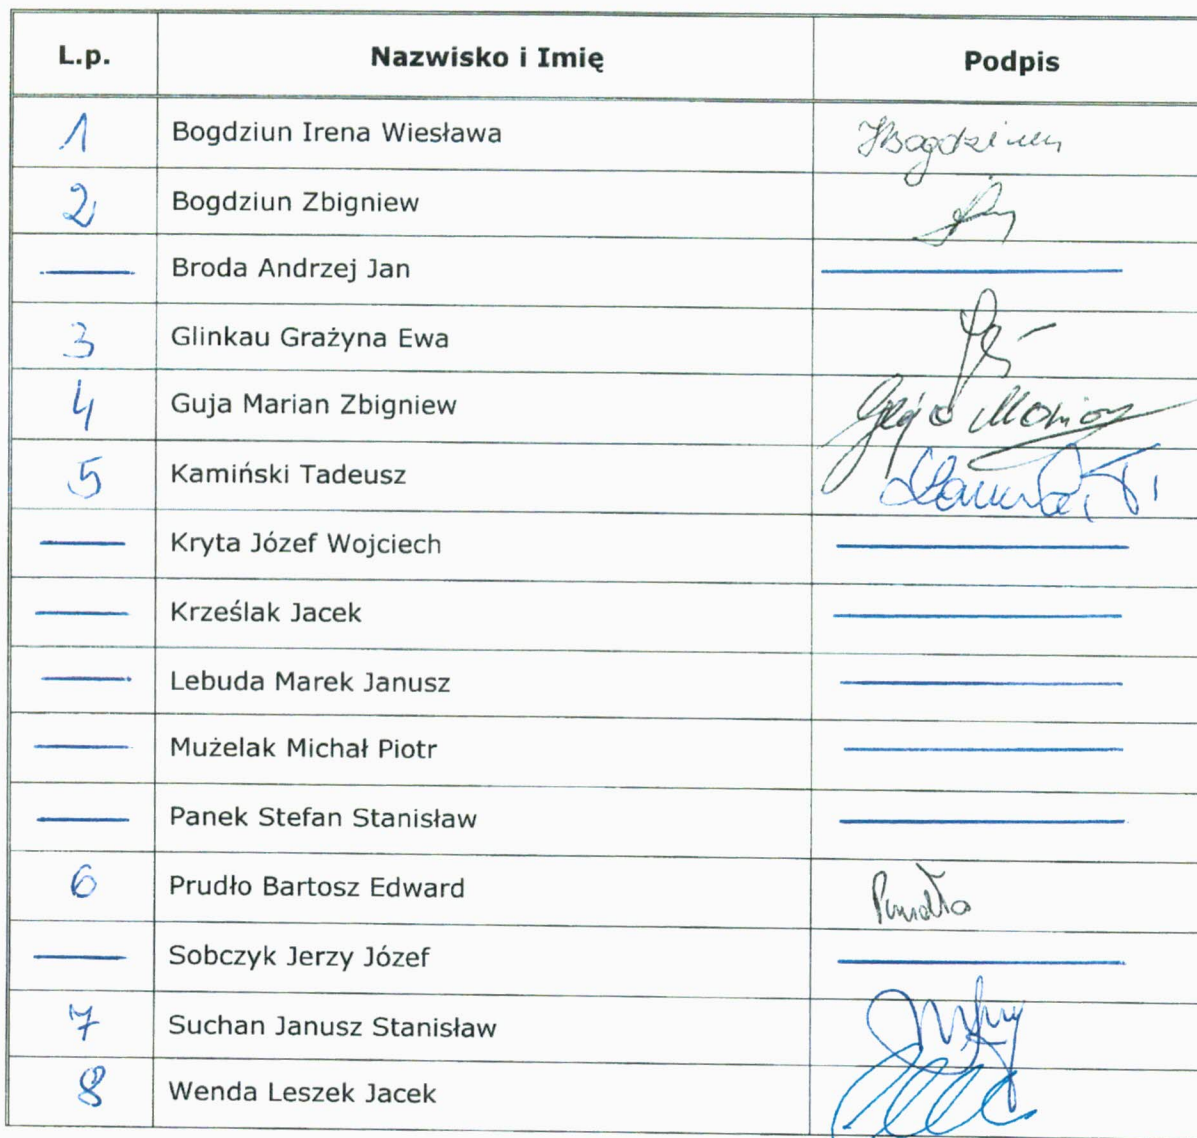 L.p. Nazwisko i Imię Podpis
1 Bogdziun Irena Wiesława IBogdziun
2 Bogdziun Zbigniew
Broda Andrzej Jan
3 Glinkau Grażyna Ewa
4 Guja Marian Zbigniew Guja Marian
5 Kamiński Tadeusz
Kryta Józef Wojciech
Krześlak Jacek
Lebuda Marek Janusz
Mużelak Michał Piotr
Panek Stefan Stanisław
6 Prudło Bartosz Edward Prudło
Sobczyk Jerzy Józef
7 Suchan Janusz Stanisław
8 Wenda Leszek Jacek